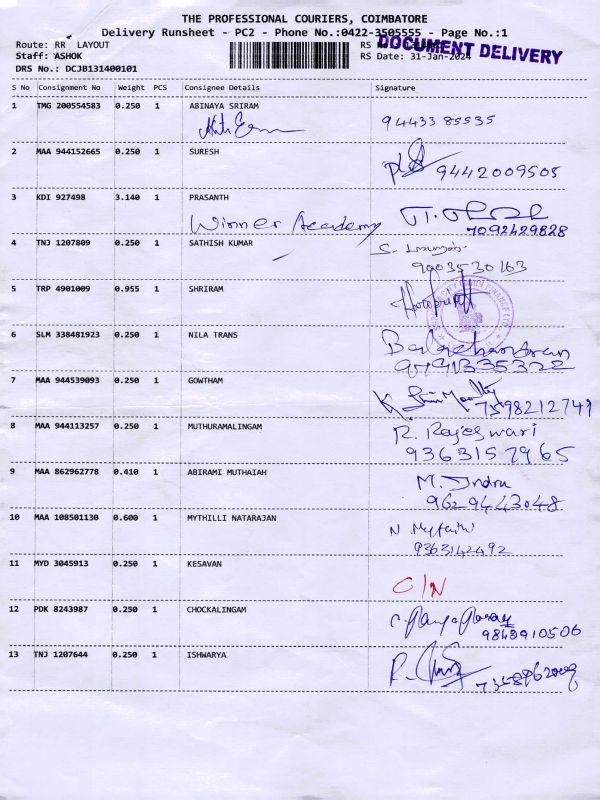 THE PROFESSIONAL COURIERS, COIMBATORE
Delivery Runsheet - PC2 - Phone No.:0422-3505555 - Page No.:1
Route: RR LAYOUT RS No
DOCUMENT DELIVERY
Staff: ASHOK RS Date: 31-Jan-2024
DRS No.: DCJB131400101
S No Consignment No Weight PCS Consignee Details Signature
1 TMG 200554583 0.250 1 ABINAYA SRIRAM
94433 85535
2 MAA 944152665 0.250 1 SURESH
9442009505
3 KDI 927498 3.140 1 PRASANTH
Winner Academy
7092429828
4 TNJ 1207809 0.250 1 SATHISH KUMAR
9003530163
5 TRP 4901009 0.955 1 SHRIRAM
6 SLM 338481923 0.250 1 NILA TRANS
Balachandran
9791335322
7 MAA 944539093 0.250 1 GOWTHAM
7598212741
8 MAA 944113257 0.250 1 MUTHURAMALINGAM
R. Rajeswari
9363157965
9 MAA 862962778 0.410 1 ABIRAMI MUTHAIAH
M. Indra
9629443048
10 MAA 108501130 0.600 1 MYTHILLI NATARAJAN
9363142492
11 MYD 3045913 0.250 1 KESAVAN
C/N
12 PDK 8243987 0.250 1 CHOCKALINGAM
9843910506
13 TNJ 1207644 0.250 1 ISHWARYA